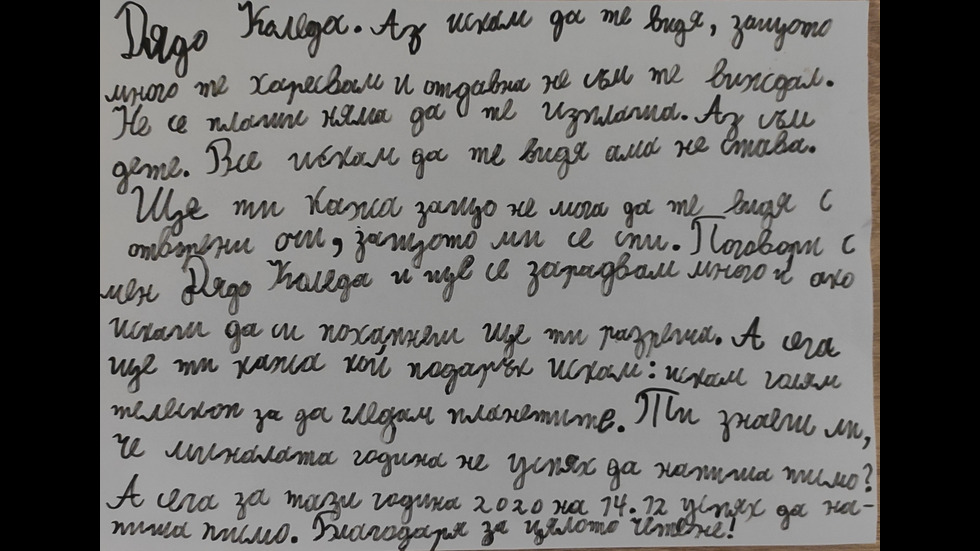 Дядо Коледа. Аз искам да те видя, защото
много те харесвам и отдавна не съм те виждал.
Не се плаши няма да те изплаша. Аз съм
дете. Все искам да те видя ама не става.
Ще ти кажа защо не мога да те видя с
отворени очи, защото ми се спи. Поговори с
мен Дядо Коледа и ще се зарадвам много и ако
искаш да си похапнеш ще ти разреша. А сега
ще ти кажа кой подарък искам: искам голям
телескоп за да гледам планетите. Ти знаеш ли,
че миналата година не успях да напиша писмо?
А сега за тази година 2020 на 14.12 успях да на-
пиша писмо. Благодаря за цялото четене!